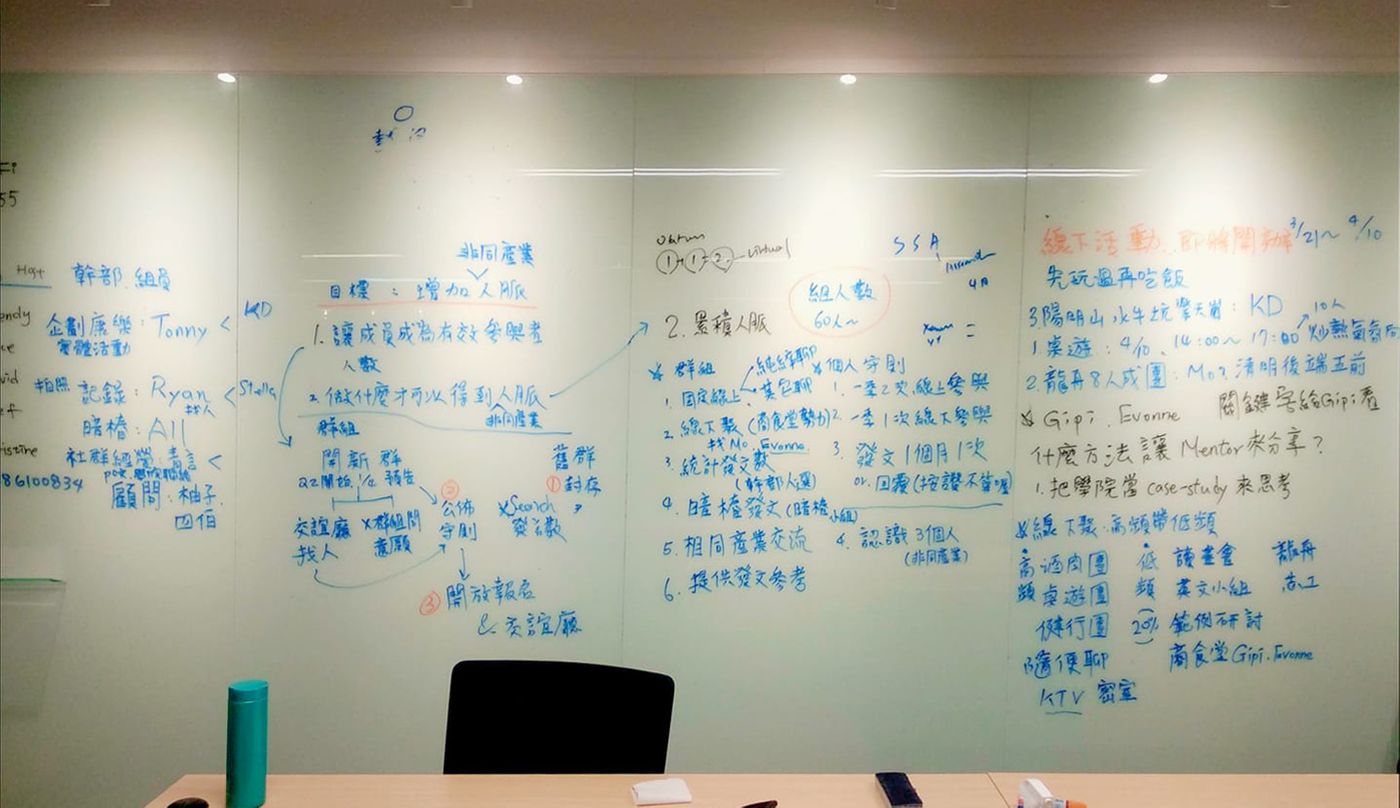 Host
幹部.組員
企劃康樂：Tonny < KD
實體活動
拍照 記錄：Ryan < Stella
找人
暗樁：All
社群經營：
86100834
顧問：柚子.
四佰
非同產業
目標：增加人脈
1. 讓成員成為有效參與者
人數
2. 做什麼才可以得到人脈
非同產業
群組
開新群
Q2開始 1/4 預告
交誼廳
找人
X群組問
意願
② 公佈
守則
舊群
① 封存
XSearch
發言數
③ 開放報名
& 交誼廳
①+①+②-virtual
SSA
組人數
60人~
2. 累積人脈
群組
1. 固定線上
純純聊
英包聊
2. 線下聚(商食堂勢力)
找Mo. Evonne
3. 統計發文數
(幹部人選)
4. 暗樁發文(暗樁
小組)
5. 相同產業交流
6. 提供發文參考
個人守則
1. 一季2次線上參與
2. 一季1次線下參與
3. 發文1個月1次
or. 回覆(按讚不算喔)
4. 認識3個人
(非同產業)
線下活動.即將開辦 3/21~4/10
先玩過再吃飯
3.陽明山水牛坑擎天崗：KD
10人
1.桌遊：4/10、14:00~17:00 炒熱氣氛用
2.龍舟8人成團：Mo？清明後端五前
Gipi. Evonne 關鍵字給Gipi看
什麼方法讓Mentor來分享？
1.把學院當case-study來思考
線下聚：高頻帶低頻
高頻
酒肉團
桌遊團
健行團
隨便聊
KTV 密室
低頻
(20%)
讀書會
英文小組
範例研討
商食堂Gipi.Evonne
龍舟
志工